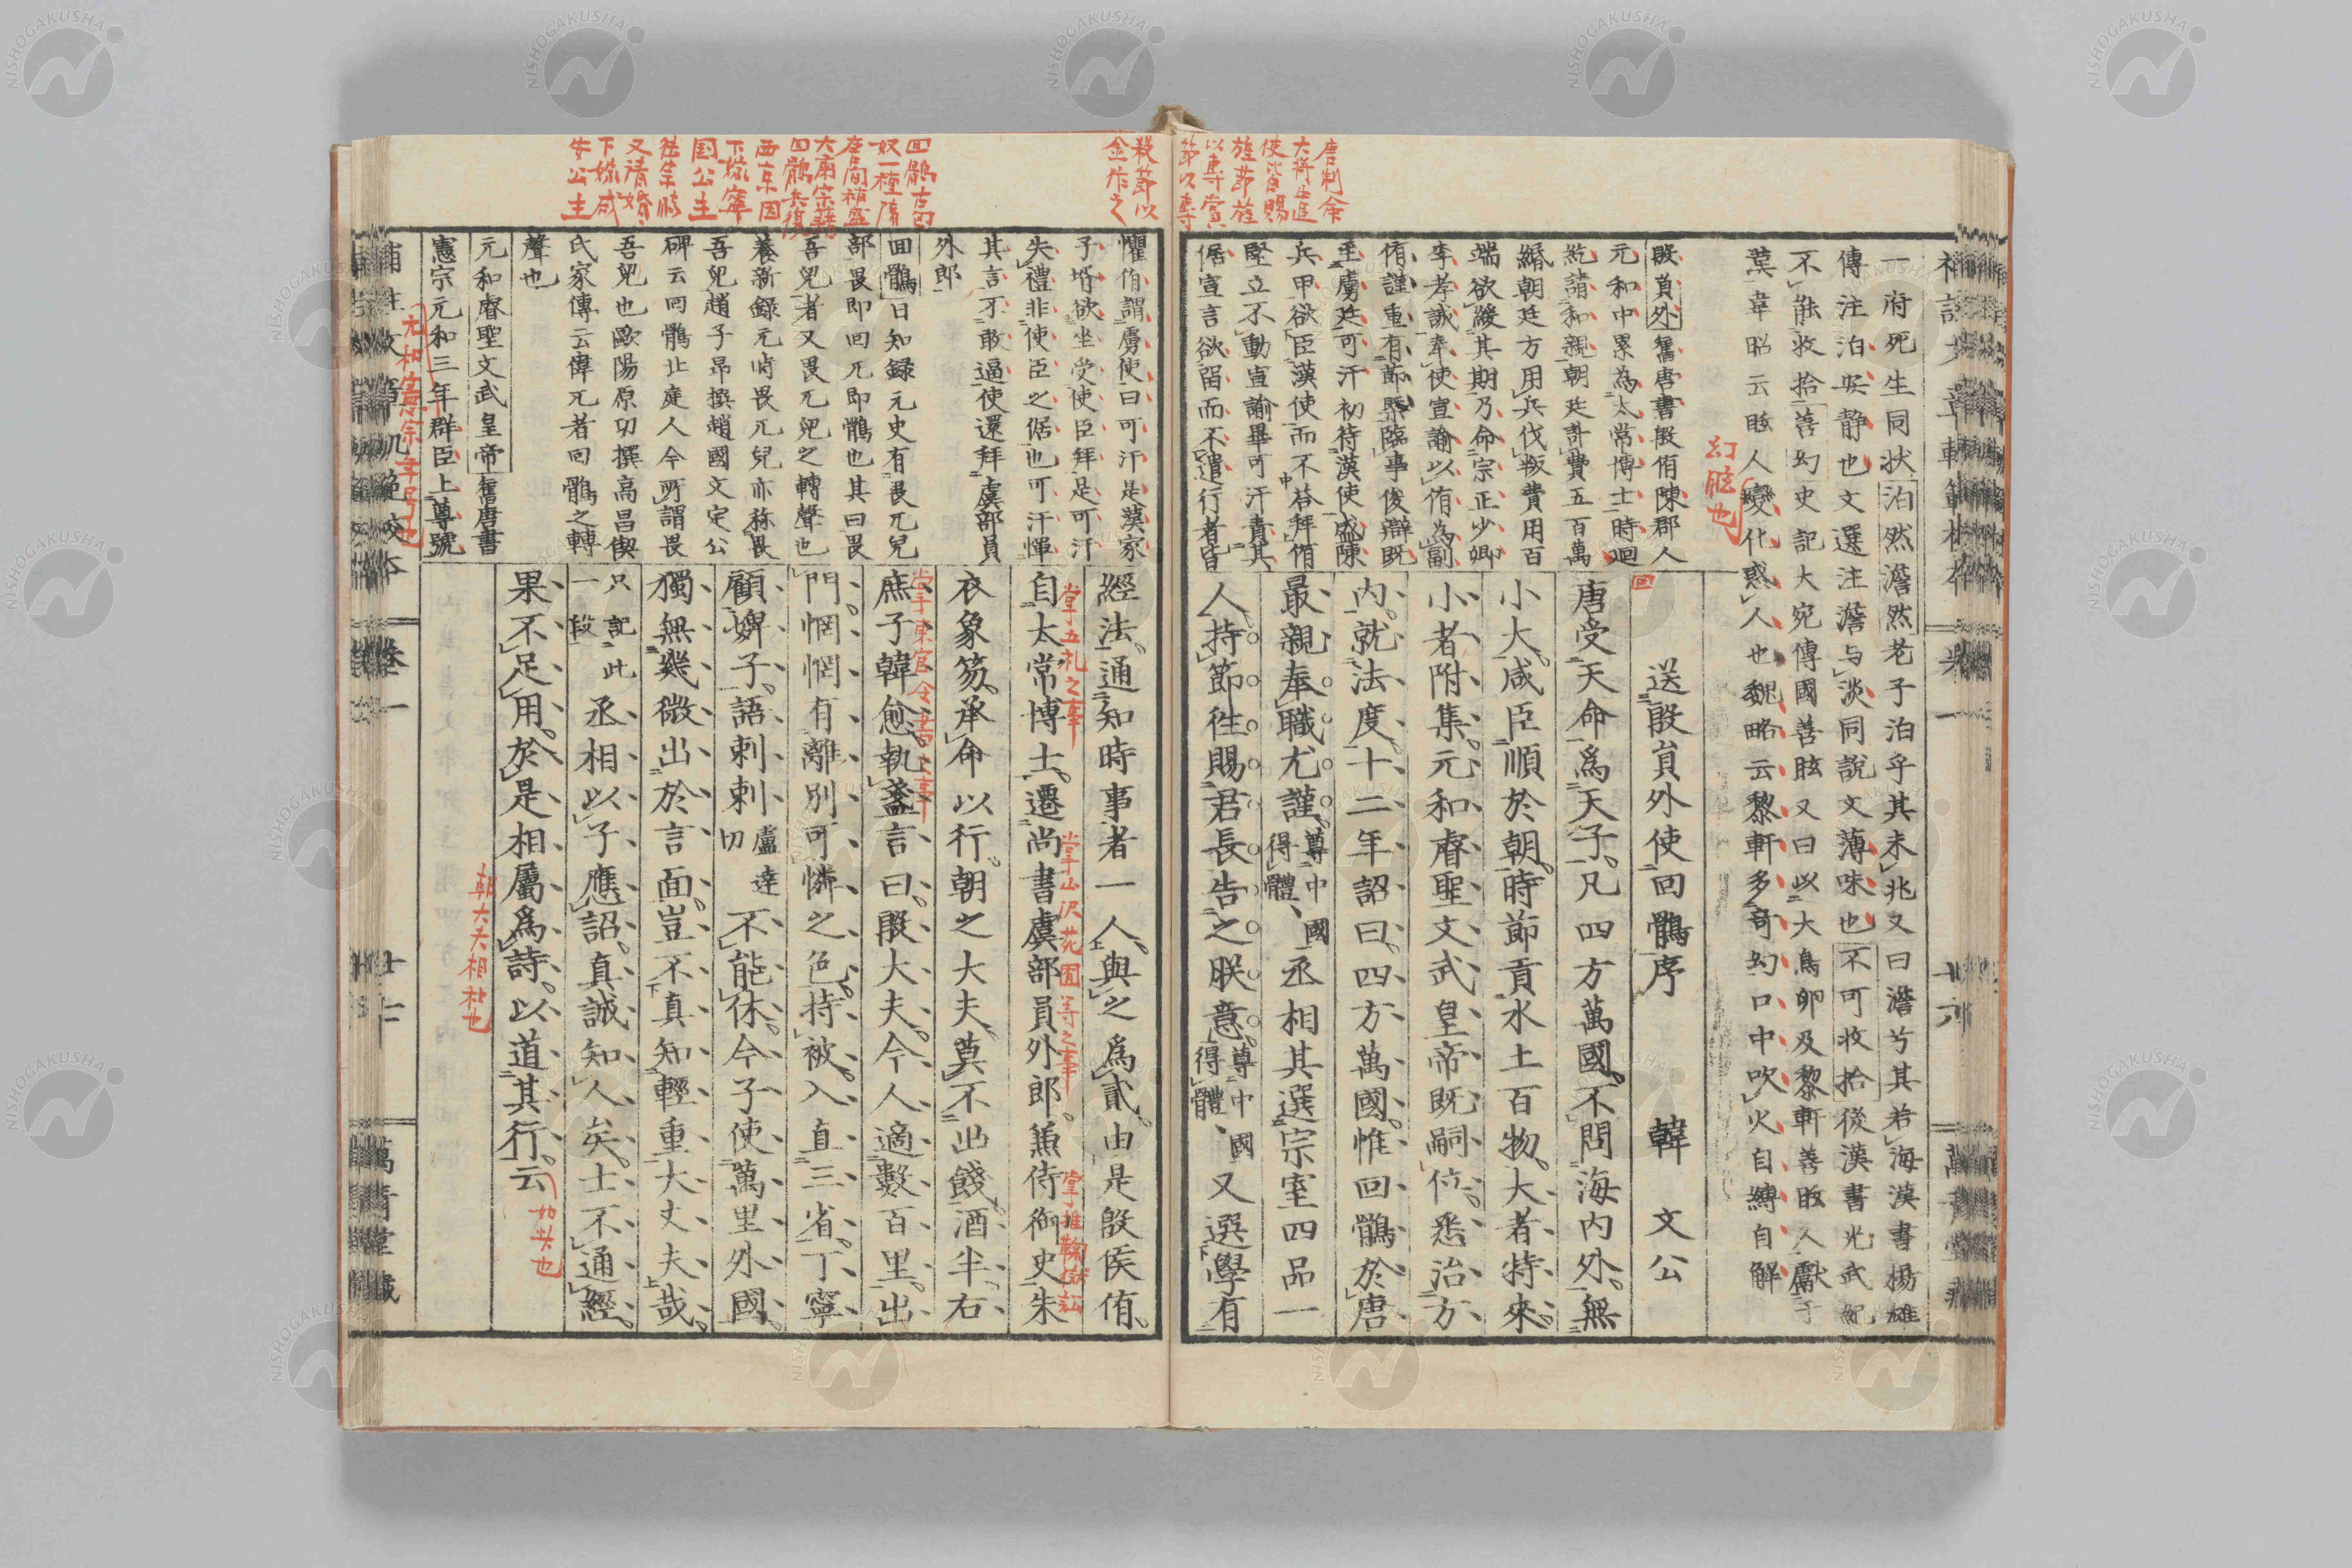 一府死生同状泊然澹然老子泊乎其未兆又曰澹兮其若海漢書揚雄
傳注泊安静也文選注澹与淡同説文薄味也不可收拾後漢書光武紀
不能收拾善幻史記大宛傳國善眩又曰以大鳥卵及黎軒善眩人獻于
漢韋昭云眩人變化惑人也魏略云黎軒多奇幻口中吹火自縛自解
幻眩也
送殷員外使回鶻序　韓文公
殷員外舊唐書殷侑陳郡人
元和中累為太常博士時迴
紇請和親朝廷計費五百萬
緡朝廷方用兵伐叛費用百
端欲緩其期乃命宗正少卿
李孝誠奉使宣諭以侑為副
侑謹重有節槩臨事俊辯既
至虜廷可汗初待漢使盛陳
兵甲欲臣漢使而不答拜侑
堅立不動宣諭畢可汗責其
倨宣言欲留而不遣行者皆
唐受天命爲天子凡四方萬國不問海内外無
小大咸臣順於朝時節貢水土百物大者特來
小者附集元和睿聖文武皇帝既嗣位悉治方
内就法度十二年詔曰四方萬國惟回鶻於唐
最親奉職尤謹尊中國得體丞相其選宗室四品一
人持節往賜君長告之朕意尊中國得體又選學有
懼侑謂虜使曰可汗是漢家
子壻欲坐受使臣拜是可汗
失禮非使臣之倨也可汗憚
其言不敢逼使還拜虞部員
外郎
回鶻日知録元史有畏兀兒
部畏即回兀即鶻也其曰畏
吾兒者又畏兀兒之轉聲也
養新録元時畏兀兒亦称畏
吾兒趙子昂撰趙國文定公
碑云回鶻北庭人今所謂畏
吾兒也歐陽原功撰高昌偰
氏家傳云偉兀者回鶻之轉
聲也
元和睿聖文武皇帝舊唐書
憲宗元和三年群臣上尊號
經法通知時事者一人與之爲貳由是殷侯侑
自太常博士遷尚書虞部員外郎兼侍御史朱
衣象笏承命以行朝之大夫莫不出餞酒半右
庶子韓愈執盞言曰殷大夫今人適數百里出
門惘惘有離別可憐之色持被入直三省丁寧
顧婢子語剌剌盧達切不能休今子使萬里外國
獨無幾微出於言面豈不真知輕重大丈夫哉
只記此一段丞相以子應詔真誠知人矣士不通經
果不足用於是相屬爲詩以道其行云
掌五礼之事
朝大夫相杜也
元和憲宗年号也
卷一